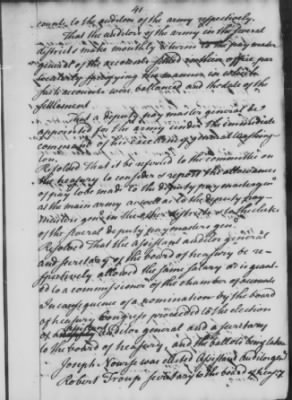 41
counts to the auditors of the army respectively.
That the auditors of the army in the several
districts make monthly returns to the pay master
general of the accounts passed in their office par
ticularly specifying the manner in which
such accounts were ballanced and the date of the
settlement
That a deputy pay master general be
appointed for the army under the immediate
command of his excellency general Washing
ton.
Resolved That it be referred to the committee on
the treasury to consider & report the allowances
of pay to be made to the deputy paymaster gen
at the main army as well as to the deputy pay
masters gen in the other districts & to the clerks
of the several deputy paymasters gen.
Resolved That the assistant auditor general
and secretary of the board of treasury be re=
spectively allowed the same salary as is grant
ed to a commissioner of the chamber of accounts
In consequence of a nomination by the board
of treasury Congress proceeded to the election
of assistant auditor general and a secretary
to the board of treasury, and the ballots being taken
Joseph Nourse was elected assistant auditor genl
Robert Troup secretary to the board of treasy